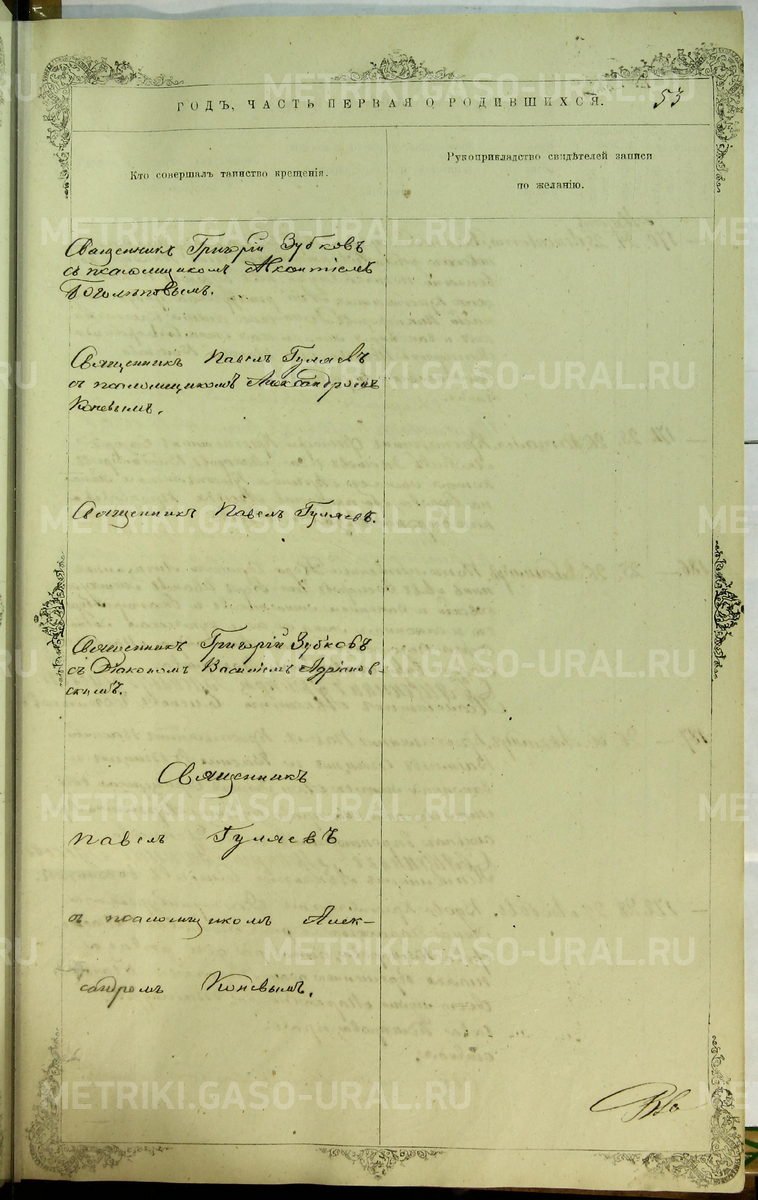 ГОДЪ, ЧАСТЬ ПЕРВАЯ О РОДИВШИХСЯ.
53
Кто совершалъ таинство крещенія.
Рукоприкладство свидѣтелей записи
по желанію.
Священникъ Григорій Зубковъ
съ псаломщикомъ
Боголѣповымъ.
Священникъ Павелъ Гуляевъ
съ псаломщикомъ Александромъ
Коневымъ.
Священникъ Павелъ Гуляевъ.
Священникъ Григорій Зубковъ
съ Діакономъ Василіемъ Адріанов-
скимъ.
Священникъ
Павелъ Гуляевъ
съ псаломщикомъ Алек-
сандромъ Коневымъ.
METRIKI.GASO-URAL.RU